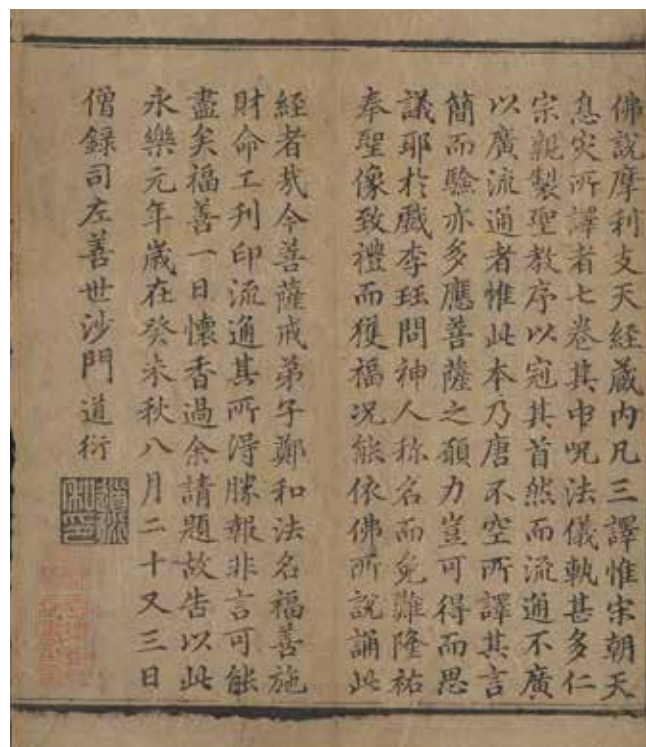 佛說摩利支天經藏內凡三譯惟宋朝天
息災所譯者七卷其中呪法儀軌甚多仁
宗親製聖教序以冠其首然而流通不廣
以廣流通者惟此本乃唐不空所譯其言
簡而驗亦多應菩薩之願力豈可得而思
議耶於戲李珏問神人称名而免難隆祐
奉聖像致禮而獲福况能依佛所說誦此
經者㢤今菩薩戒弟子鄭和法名福善施
財命工刋印流通其所得勝報非言可能
盡矣福善一日懷香過余請題故告以此
永樂元年歲在癸未秋八月二十又三日
僧錄司左善世沙門道衍